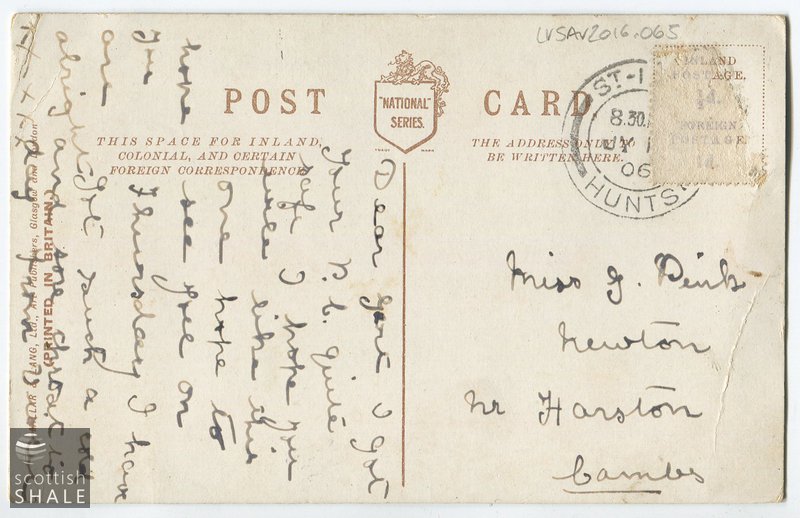 LVSAV2016.065
POST CARD
"NATIONAL" SERIES.
THIS SPACE FOR INLAND,
COLONIAL, AND CERTAIN
FOREIGN CORRESPONDENCE
THE ADDRESS ONLY TO
BE WRITTEN HERE.
INLAND
POSTAGE,
½d.
FOREIGN
POSTAGE
1d.
ST-I
8.30
JY 1
06
HUNTS.
Miss G. Pink
Newton
Nr Harston
Cambs
Dear Gert I got
your P.C. quite
safe I hope you
will like this
one hope to
see you on
Thursday I have
got such a
hope
you
are
alright
and
LANG, Ltd., Publishers, Glasgow and London
(PRINTED IN BRITAIN)
scottish
SHALE